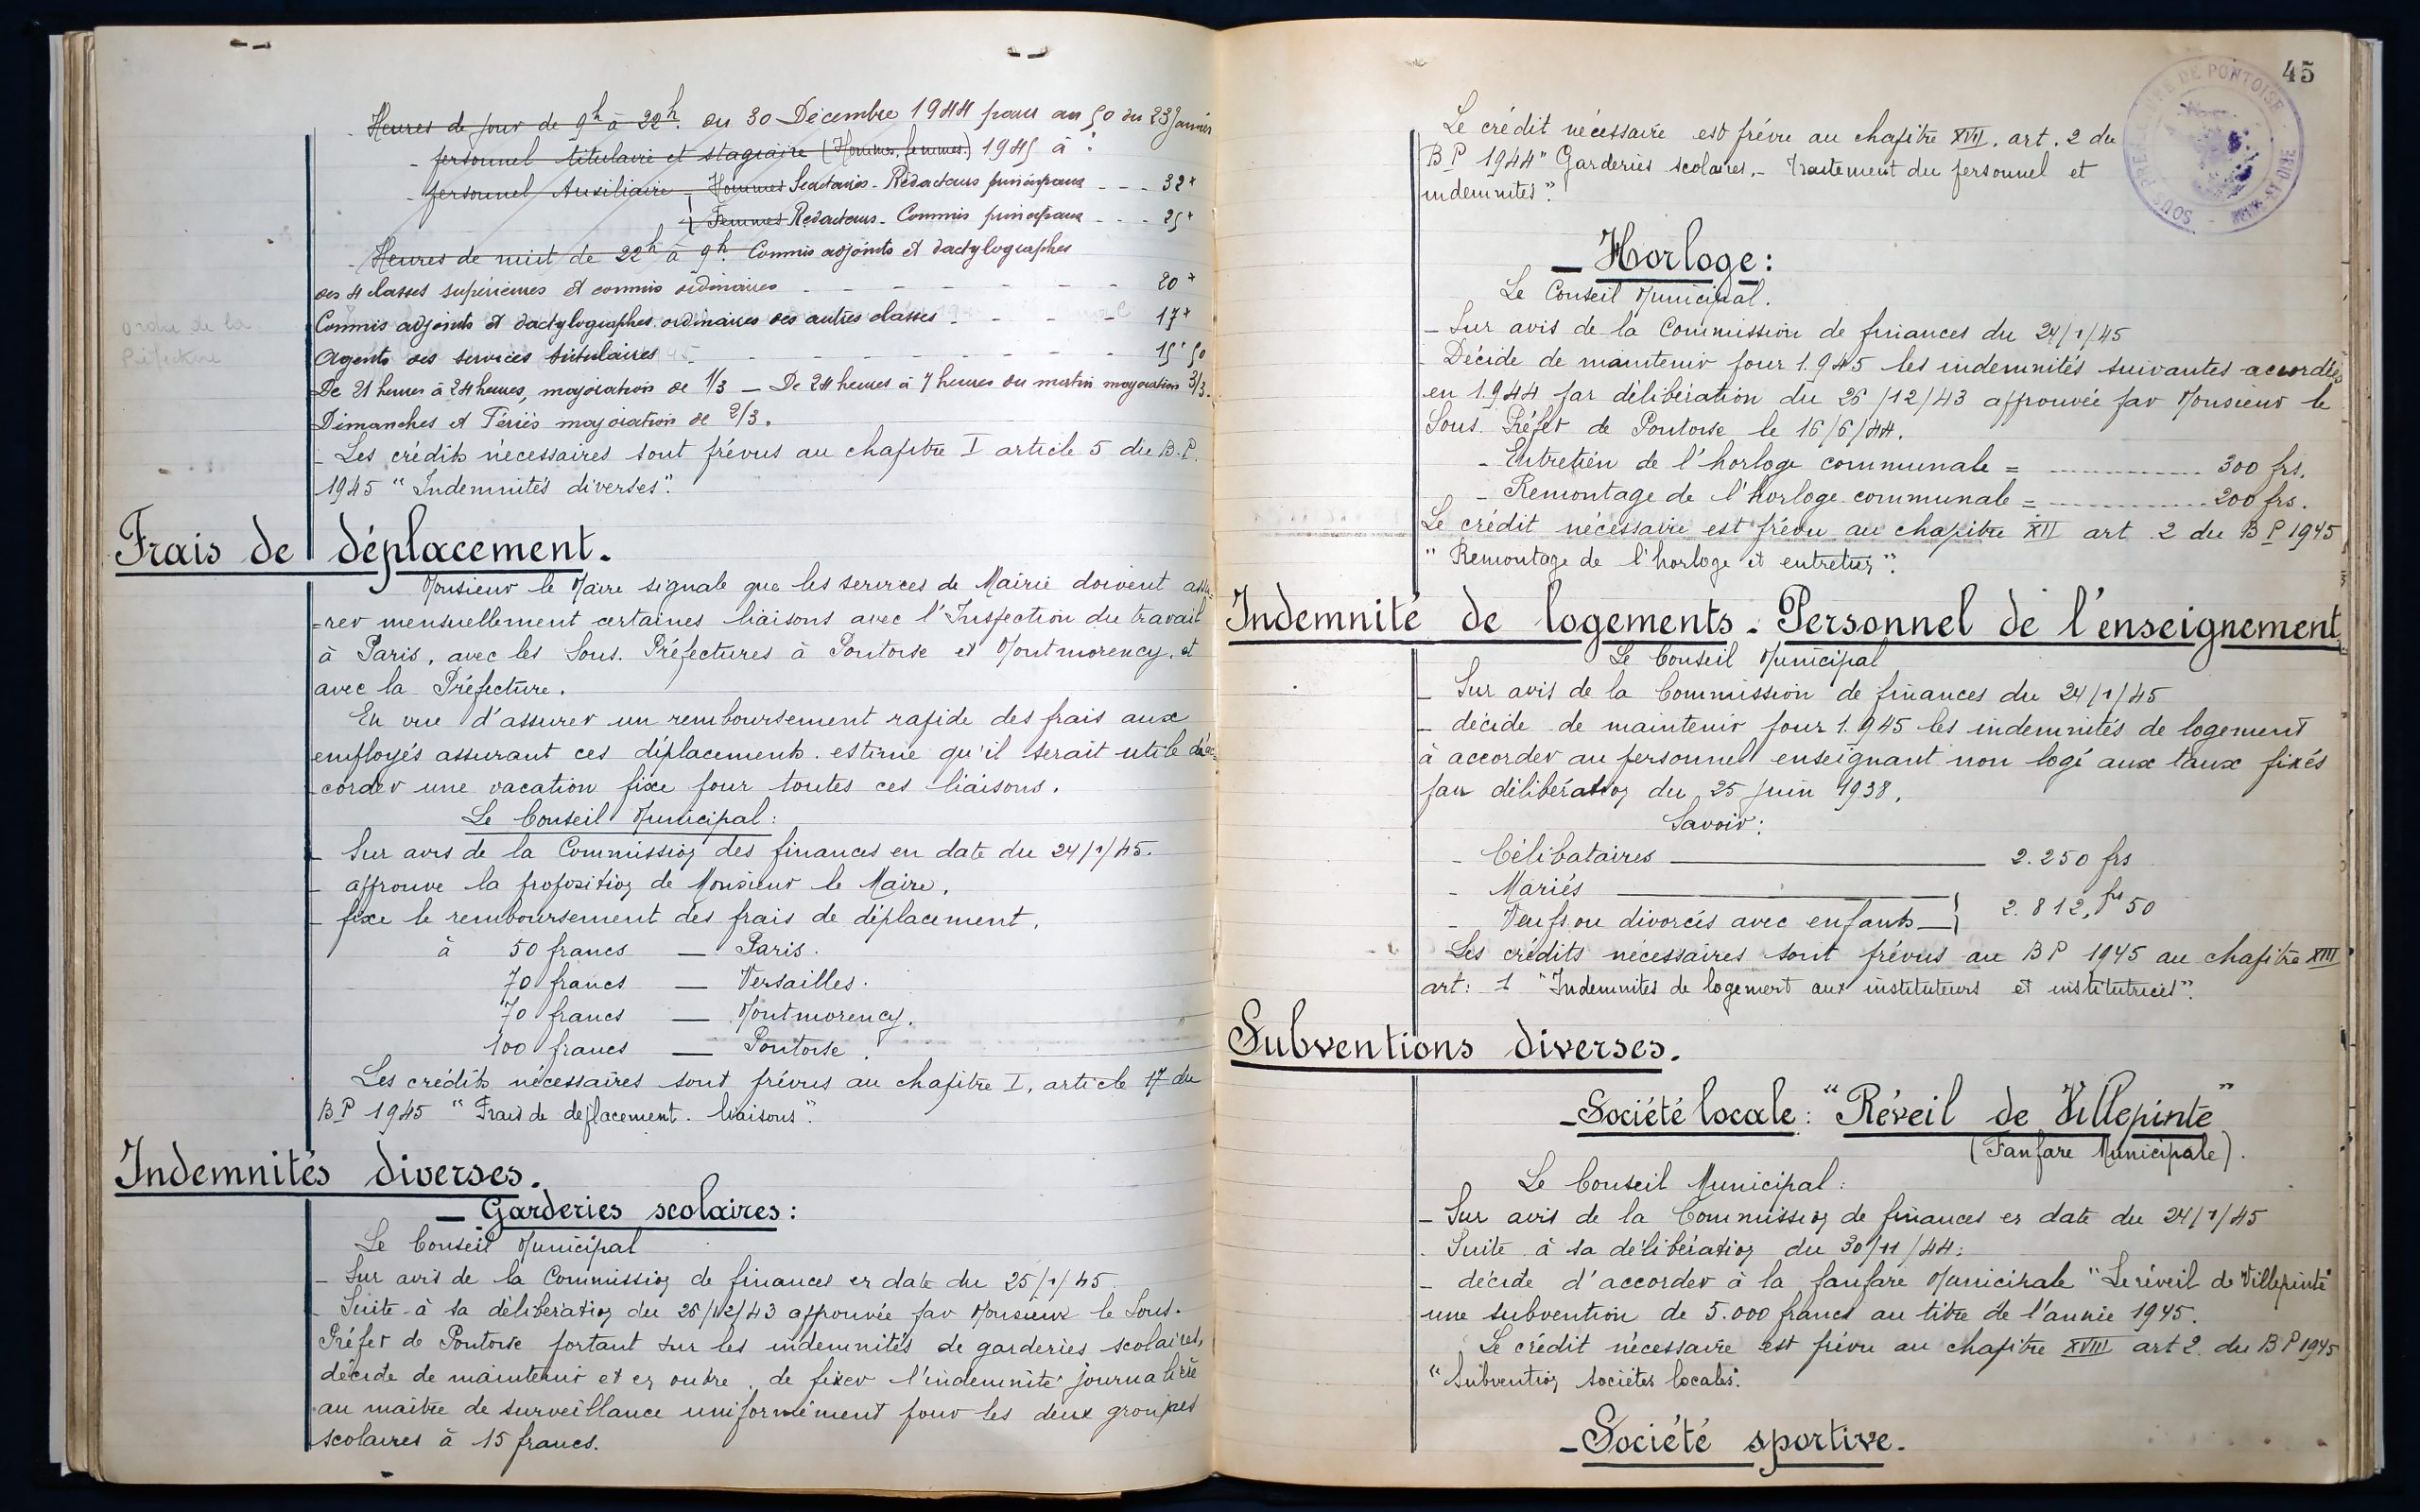 Heures de jour de 9h à 22h. du 30 Décembre 1944 paru au J.O du 23 Janvier
- personnel titulaire et stagiaire (Hommes, femmes.) 1945 à :
- personnel Auxiliaire - Hommes Secrétaires - Rédacteurs principaux - - - 32 +
Femmes Rédacteurs - Commis principaux - - - 25 +
- Heures de nuit de 22h à 9h. Commis adjoints et dactylographes
des 4 classes supérieures et commis ordinaires - - - - - - - 20 +
Commis adjoints et dactylographes ordinaires des autres classes - - - - 17 +
Agents des services titulaires - - - - - - - - 15 50
De 21 heures à 24 heures, majoration de 1/3 — De 24 heures à 7 heures du matin majoration 3/3.
Dimanches et Fériés majoration de 2/3.
- Les crédits nécessaires sont prévus au chapitre I article 5 du B.P.
1945 "Indemnités diverses".
ordre de la
Préfecture
Frais de déplacement.
Monsieur le Maire signale que les services de Mairie doivent assu-
=rer mensuellement certaines liaisons avec l'Inspection du travail
à Paris, avec les Sous. Préfectures à Pontoise et Montmorency, et
avec la Préfecture.
En vue d'assurer un remboursement rapide des frais aux
employés assurant ces déplacements. estime qu'il serait utile d'ac=
corder une vacation fixe pour toutes ces liaisons.
Le Conseil Municipal :
- Sur avis de la Commission des finances en date du 24/1/45.
- approuve la proposition de Monsieur le Maire.
- fixe le remboursement des frais de déplacement.
à 50 francs — Paris.
70 francs — Versailles.
70 francs — Montmorency.
100 francs — Pontoise.
Les crédits nécessaires sont prévus au chapitre I, article 17 du
BP 1945 "Frais de déplacement. liaisons".
Indemnités diverses.
- Garderies scolaires :
Le Conseil Municipal
- Sur avis de la Commission de finances en date du 25/1/45.
- Suite à sa délibération du 26/12/43 approuvée par Monsieur le Sous.
Préfet de Pontoise portant sur les indemnités de garderies scolaires,
décide de maintenir et en outre. de fixer l'indemnité journalière
au maitre de surveillance uniformément pour les deux groupes
scolaires à 15 francs.
45
SOUS-PREFECTURE DE PONTOISE - SEINE-ET-OISE
Le crédit nécessaire est prévu au chapitre XIII. art. 2 du
BP 1944 "Garderies scolaires. - Traitement du personnel et
indemnités".
- Horloge :
Le Conseil Municipal.
- Sur avis de la Commission de finances du 24/1/45
- Décide de maintenir pour 1.945 les indemnités suivantes accordées
en 1944 par délibération du 26/12/43 approuvée par Monsieur le
Sous. Préfet de Pontoise le 16/6/44.
- Entretien de l'horloge communale = ............... 300 frs.
- Remontage de l'horloge communale = ............... 200 frs.
Le crédit nécessaire est prévu au chapitre XII art. 2 du BP 1945
"Remontage de l'horloge et entretien".
Indemnité de logements. Personnel de l'enseignement
Le Conseil Municipal
- Sur avis de la Commission de finances du 24/1/45
- décide de maintenir pour 1.945 les indemnités de logement
à accorder au personnel enseignant non logé aux taux fixés
par délibération du 25 juin 1938.
Savoir :
- Célibataires ———— 2.250 frs
- Mariés ————
- Veufs ou divorcés avec enfants — } 2.812, frs 50
Les crédits nécessaires sont prévus au BP 1945 au chapitre XIII
art: 1 "Indemnités de logement aux instituteurs et institutrices".
Subventions diverses.
- Société locale : "Réveil de Villepinte"
(Fanfare Municipale).
Le Conseil Municipal :
- Sur avis de la Commission de finances en date du 24/1/45
- Suite à sa délibération du 30/11/44;
- décide d'accorder à la fanfare Municipale "Le réveil de Villepinte"
une subvention de 5.000 francs au titre de l'année 1945.
Le crédit nécessaire est prévu au chapitre XVIII art 2. du BP 1945
"Subvention sociétés locales".
- Société sportive.